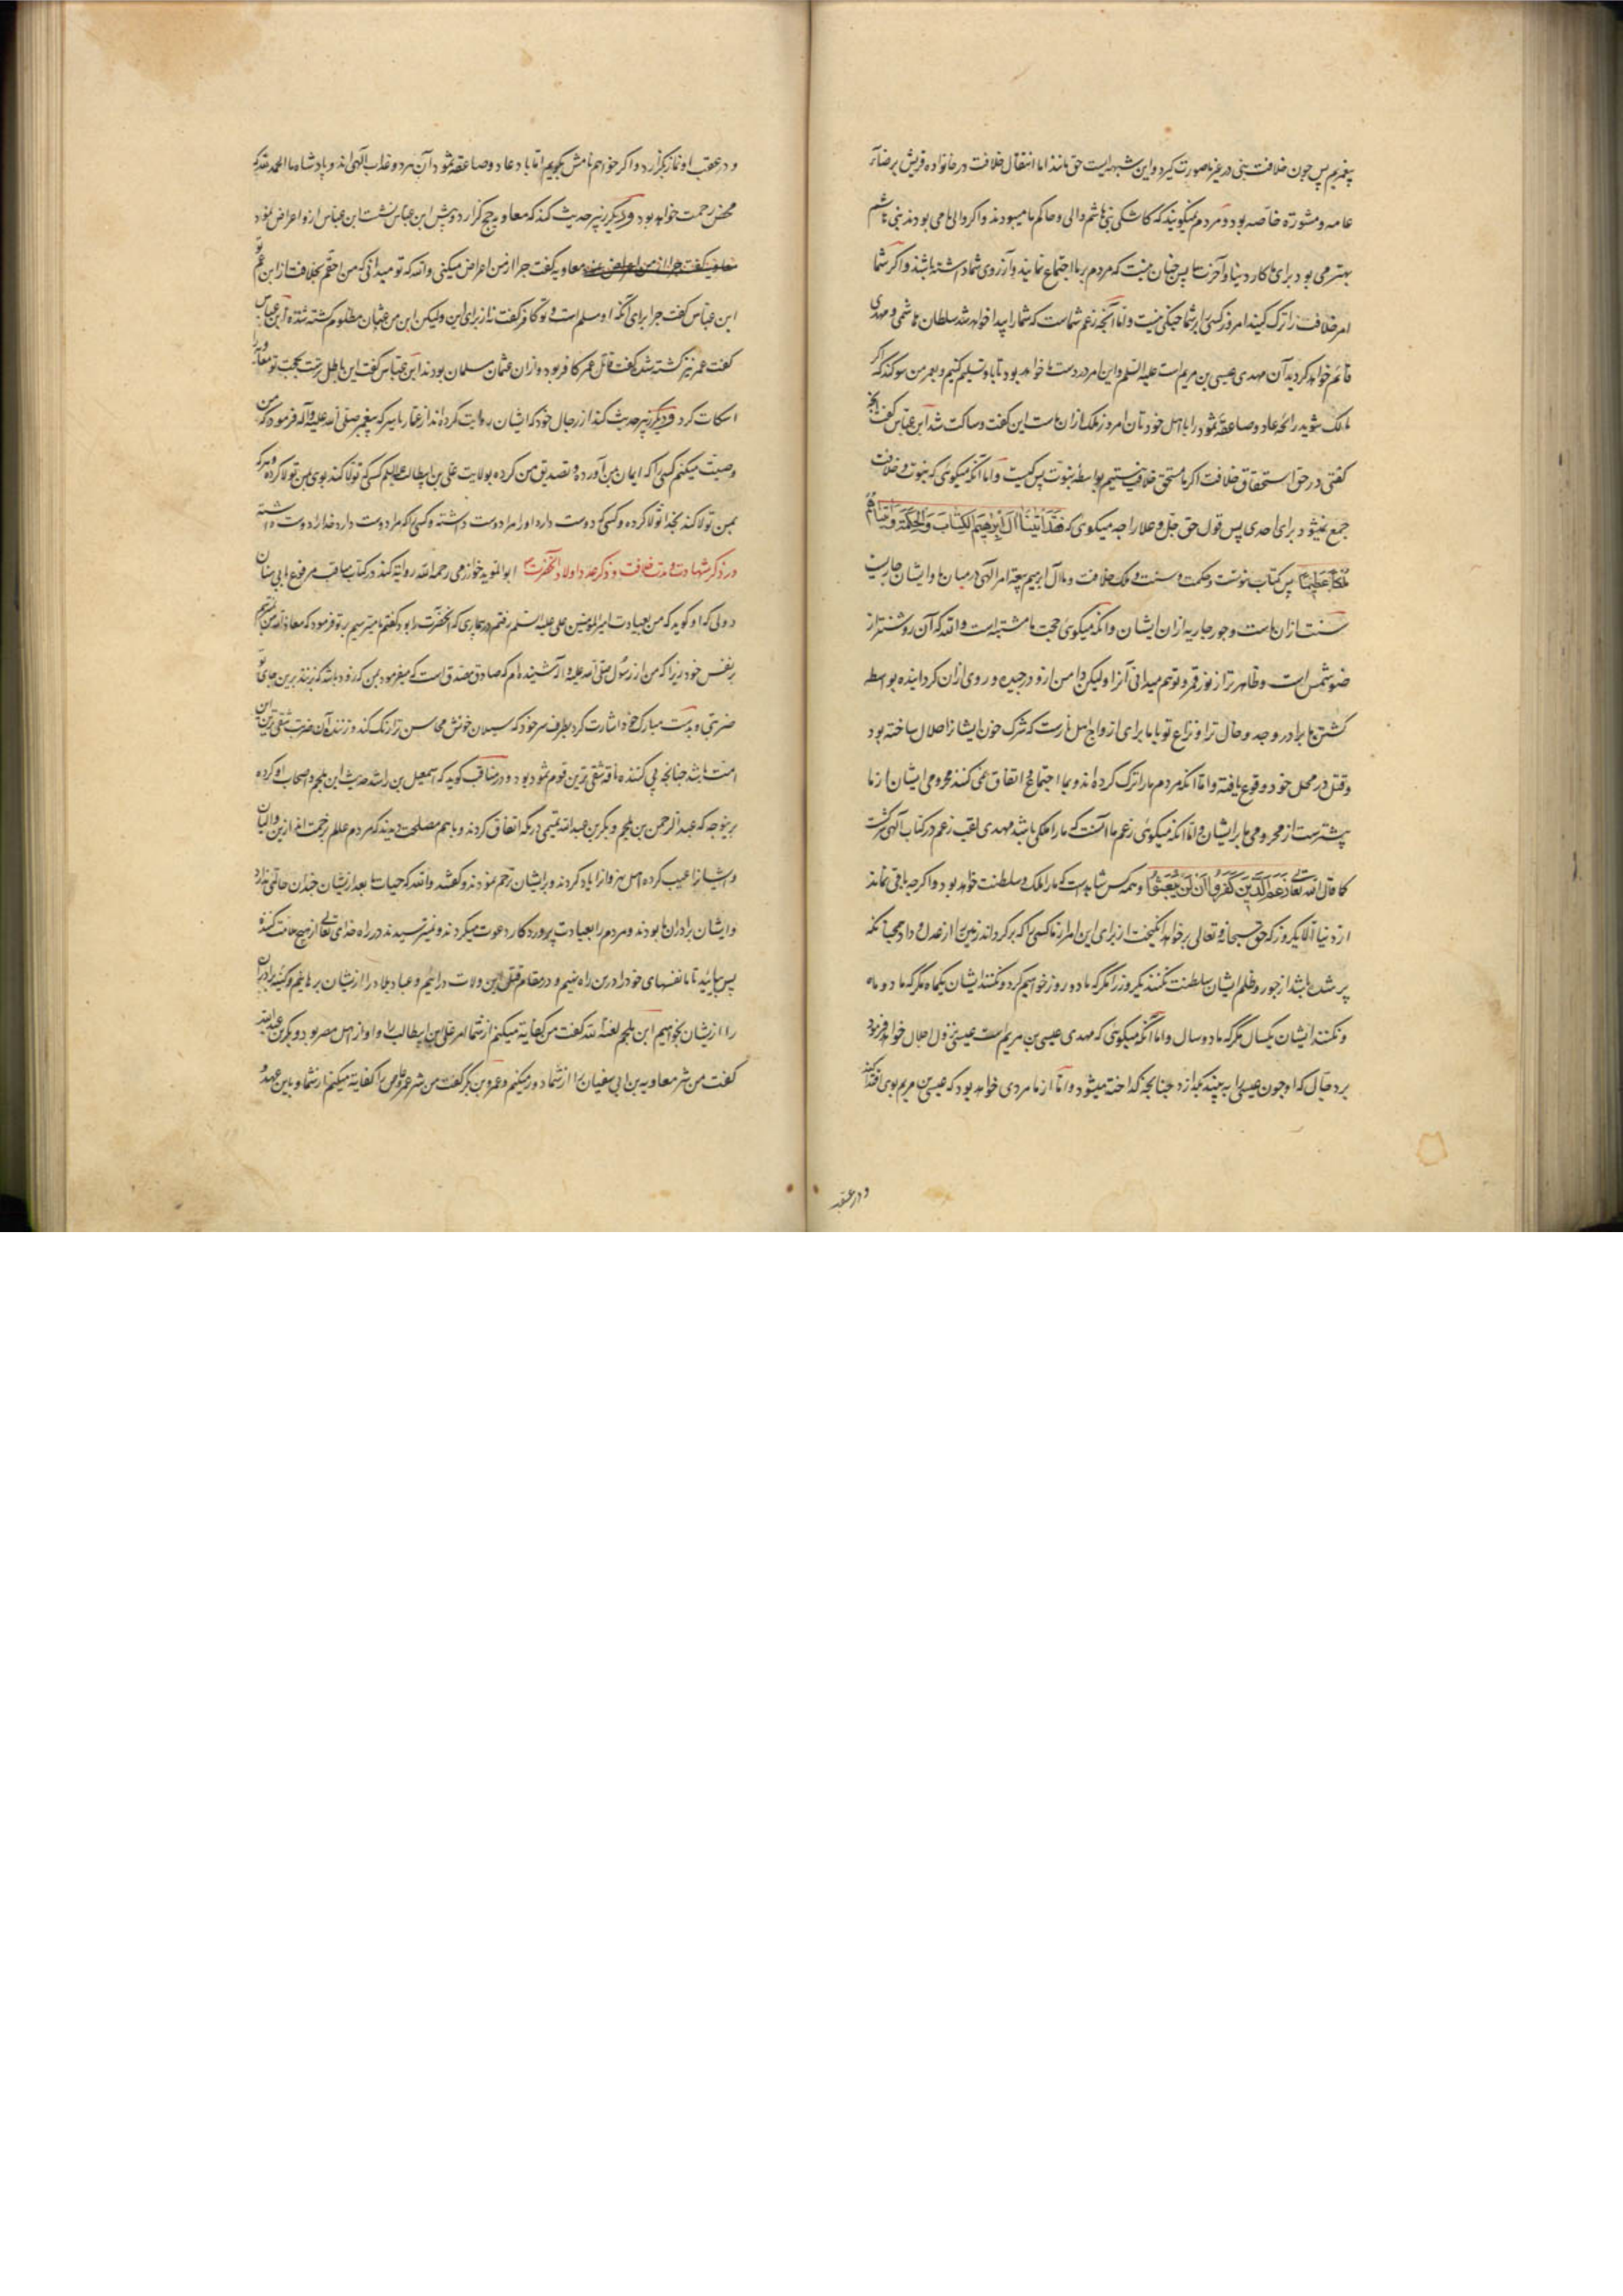 پیغمبریم پس چون خلافت بنی در غیر ما صورت کیرد و این شبهه ایست حق مانند اما انتقال خلافت در خانواده قریش برضاء
عامه و مشورة خاصه بود و مردم میکویند که کاشکی بنی هاشم والی و حاکم ما میبودند و اکر والی ما می بودند بنی هاشم
بهتر می بود برای ما کار دنیا و آخرت ما پس چنان نیست که مردم بر ما اجتماع نمایند و آرزوی شما داشته باشند و اکر شما
امر خلافت را ترک کنید امروز کسی را بر شما جنکی نیست و اما آنچه زعم شماست که شما را پیدا خواهد شد سلطان هاشمی و مهدی
قائم خواهد کردید آن مهدی عیسی بن مریم است علیه السلم و این امر در دست ما خواهد بود تا باو تسلیم کنیم و بعمر من سوکند که اکر
مالک شوید رائحه عاد و صاعقه ثمود را با اهل خودتان امروز ملک ازان ماست این کفت و ساکت شد ابن عباس کفت آنچه
کفتی در حق استحقاق خلافت اکر ما مستحق خلافت نیستیم بواسطۀ نبوت پس کیست و اما آنکه میکوئی که نبوت و خلافت
جمع نمیشود برای احدی پس قول حق جل و علا را چه میکوی که فَقَدْ اٰتَیْنَا اٰلَ اِبْرٰهِیْمَ الْکِتٰابَ وَالْحِکْمَةَ وَاٰتَیْنٰاهُمْ
مُلْکًا عَظِیْمًا پس کتاب نبوتست و حکمت و سنت و ملک خلافت و ما آل ابرهیم یعنی امر الهی در میان ما و ایشان جاریست
سنت ازان ماست و جور جاریه ازان ایشان و آنکه میکوی حجت ما مشتبه است والله که آن روشنتر از
ضوء شمس است و ظاهرتر از نور قمر و تو هم میدانی آنرا ولیکن دامن ازو درچیده و روی ازان کردانیده بواسطه
کشتن ما برادر و جد و خال ترا و نزاع تو با ما برای ارواح اهل نارست که شرک خون ایشانرا حلال ساخته بود
و قتل در محل خود وقوع یافته و اما آنکه مردم ما را ترک کرده اند و بما اجتماع و اتفاق نمی کنند محرومی ایشان از ما
بیشترست از محرومی ما بر ایشان و اما آنکه میکوئی زعم ما آنست که ما را ملکی باشد مهدی لقب زعم در کتاب الهی
کما قال الله تعالی زَعَمَ الَّذِیْنَ کَفَرُوا اَنْ لَنْ یُبْعَثُوا و همه کس شاهدست که ما را ملک و سلطنت خواهد بود و اکرچه باقی نماند
از دنیا الا یکروز که حق سبحانه و تعالی برخواهد انکیخت از برای این امر از ما کسی را که برکرداند زمین را از عدل و داد همچنانکه
پر شده باشد از جور و ظلم ایشان سلطنت نکنند یکروز را مکر که ما دو روز خواهیم کرد و نکنند ایشان یکماه مکر که ما دو ماه
و نکنند ایشان یکسال مکر که ما دو سال و اما آنکه میکوئی که مهدی عیسی بن مریم است عیسی نزول اجلال خواهد فرمود
بر دجال که او چون عیسی را به بیند بکدازد چنانچه کداخته میشود و اما از ما مردی خواهد بود که عیسی بن مریم بوی اقتدا کند
و در عقب
و در عقب او نماز بکزارد و اکر خواهیم نامش بکویم اما باد عاد و صاعقه ثمود آن هر دو عذاب الهی اند و پادشاه ما الحمد لله که
محض رحمت خواهد بود و دیکر زبیر حدیث کند که معاویه حج کزارد و پیش ابن عباس نشست ابن عباس ازو اعراض نمود
معاویه کفت چرا از من اعراض میکنی والله که تو میدانی که من احقم بخلافت از ابن عم تو
ابن عباس کفت چرا برای آنکه او مسلم است و تو کافر کفت نه از برای این ولیکن ابن عم من عثمان مظلوم کشته شده ابن عباس
کفت عمر نیز کشته شد کفت قاتل عمر کافر بود و ازان عثمان مسلمان بودند ابن عباس کفت این باطل ترست بحجت تو معاویه را
اسکات کرد و دیکر زبیر حدیث کند از رجال خود که ایشان روایت کرده اند از عمار یاسر که پیغمبر صلی الله علیه و آله فرمود که من
وصیت میکنم کسی را که ایمان بمن آورده و تصدیق من کرده بولایت علی بن ابیطالب علیه السلم کسی که تولا کند بوی بمن تولا کرده و هر که
بمن تولا کند بخدا تولا کرده و کسی که دوست دارد او را مرا دوست داشته و کسی که مرا دوست دارد خدا را دوست داشته
در ذکر شهادت و مدت خلافت و ذکر عدد اولاد آنحضرت ابو المؤید خوارزمی رحمه الله روایت کند در کتاب مناقب مرفوع بابی سنان
دولی که او کوید که من بعیادت امیرالمؤمنین علی علیه السلم رفتم در بیماری که آنحضرت را بود کفتم ما میترسیم بر تو فرمود که معاذ الله من نمیترسم
بر نفس خود زیرا که من از رسول صلی الله علیه و آله شنیده ام که صادق مصدق است که میفرمود بمن که زود باشد که بزنند برین جای تو
ضربتی و بدست مبارک خود اشارت کرد بطرف سر خود که سیلان خونش محاسن ترا رنک کند و زننده آن ضربت شقی ترین این
امت باشد چنانچه پی کننده ناقه شقی ترین قوم ثمود بود و در مناقب کوید که اسمعیل بن راشد حدیث ابن ملجم و اصحاب او کرده
برینوجه که عبد الرحمن بن ملجم و بکر بن عبد الله تمیمی در مکه اتفاق کردند و با هم مصلحت دیدند که مردم عالم بزحمت اند ازین والیان
و ایشانرا عیب کرده اهل نهروانرا یاد کردند و بر ایشان ترحم نمودند و کفتند والله که حیات ما بعد از ایشان چندان حالتی ندارد
و ایشان برادران ما بودند و مردم را بعبادت پروردکار دعوت میکردند و نمیترسیدند در راه خدای تعالی از هیچ ملامت کننده
پس بیائید تا ما نفسهای خود را درین راه نهیم و در مقام قتل این ولات درائیم و عباد و بلاد را از ایشان برهانیم و کینه برادران
را از ایشان بخواهیم ابن ملجم لعنه الله کفت من کفایة میکنم از شما امر علی بن ابیطالب را و او از اهل مصر بود و بکر بن عبد الله
کفت من شر معاویه بن ابی سفیان را از شما دور میکنم و عمرو بن بکر کفت من شر عمرو عاص را کفایة میکنم از شما و باین عهد و